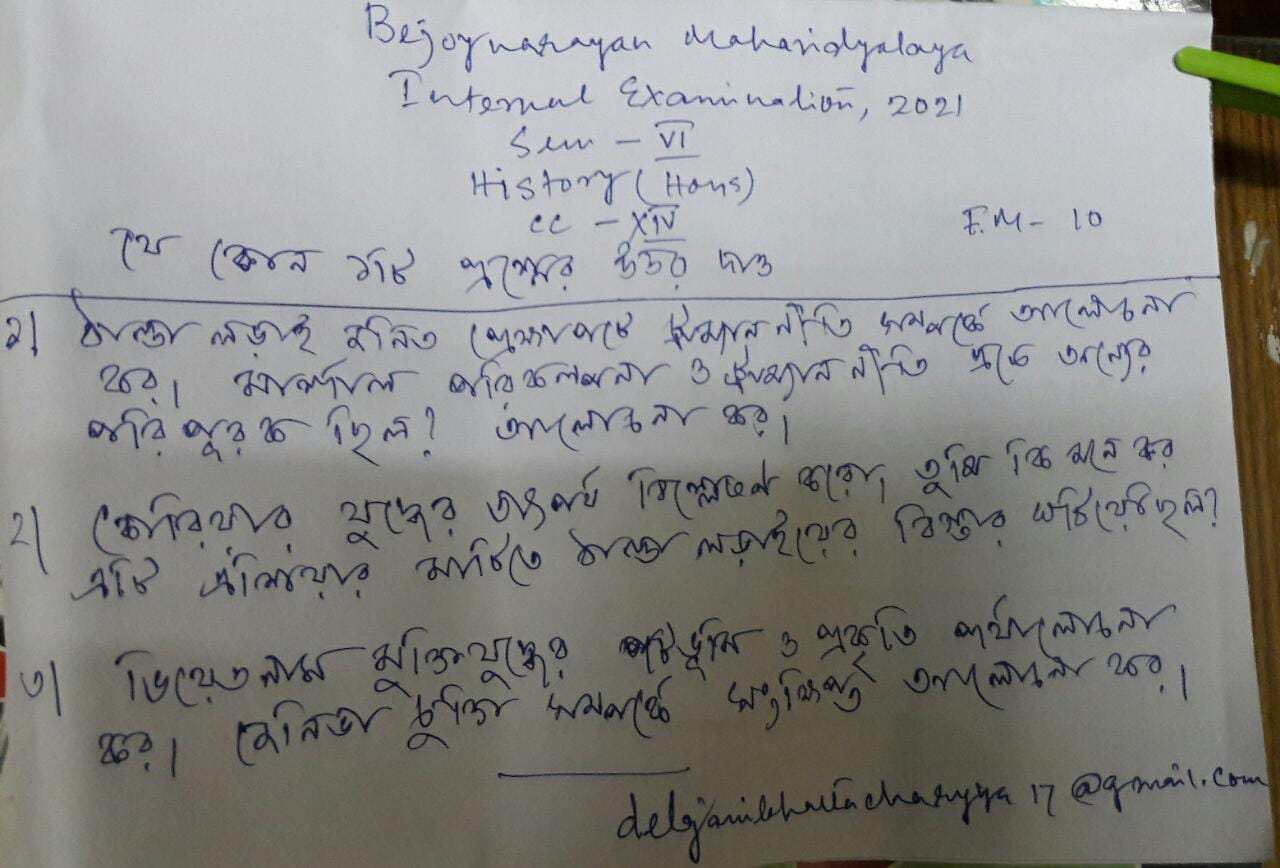 Bejoynarayan Mahavidyalaya
Internal Examination, 2021
Sem - VI
History (Hons)
CC - XIV
F.M- 10
যে কোন ১টি প্রশ্নের উত্তর দাও
১| ঠান্ডা লড়াই জনিত প্রেক্ষাপটে ট্রুম্যান নীতি সম্পর্কে আলোচনা
কর। মার্শাল পরিকল্পনা ও ট্রুম্যান নীতি একে অন্যের
পরিপূরক ছিল? আলোচনা কর।
২| কোরিয়ার যুদ্ধের তাৎপর্য বিশ্লেষণ করো, তুমি কি মনে কর
এটি এশিয়ার মাটিতে ঠান্ডা লড়াইয়ের বিস্তার ঘটিয়েছিল?
৩| ভিয়েতনাম মুক্তিযুদ্ধের পটভূমি ও প্রকৃতি পর্যালোচনা
কর। জেনিভা চুক্তি সম্পর্কে সংক্ষিপ্ত আলোচনা কর।
debjanibhattacharyya17@gmail.com